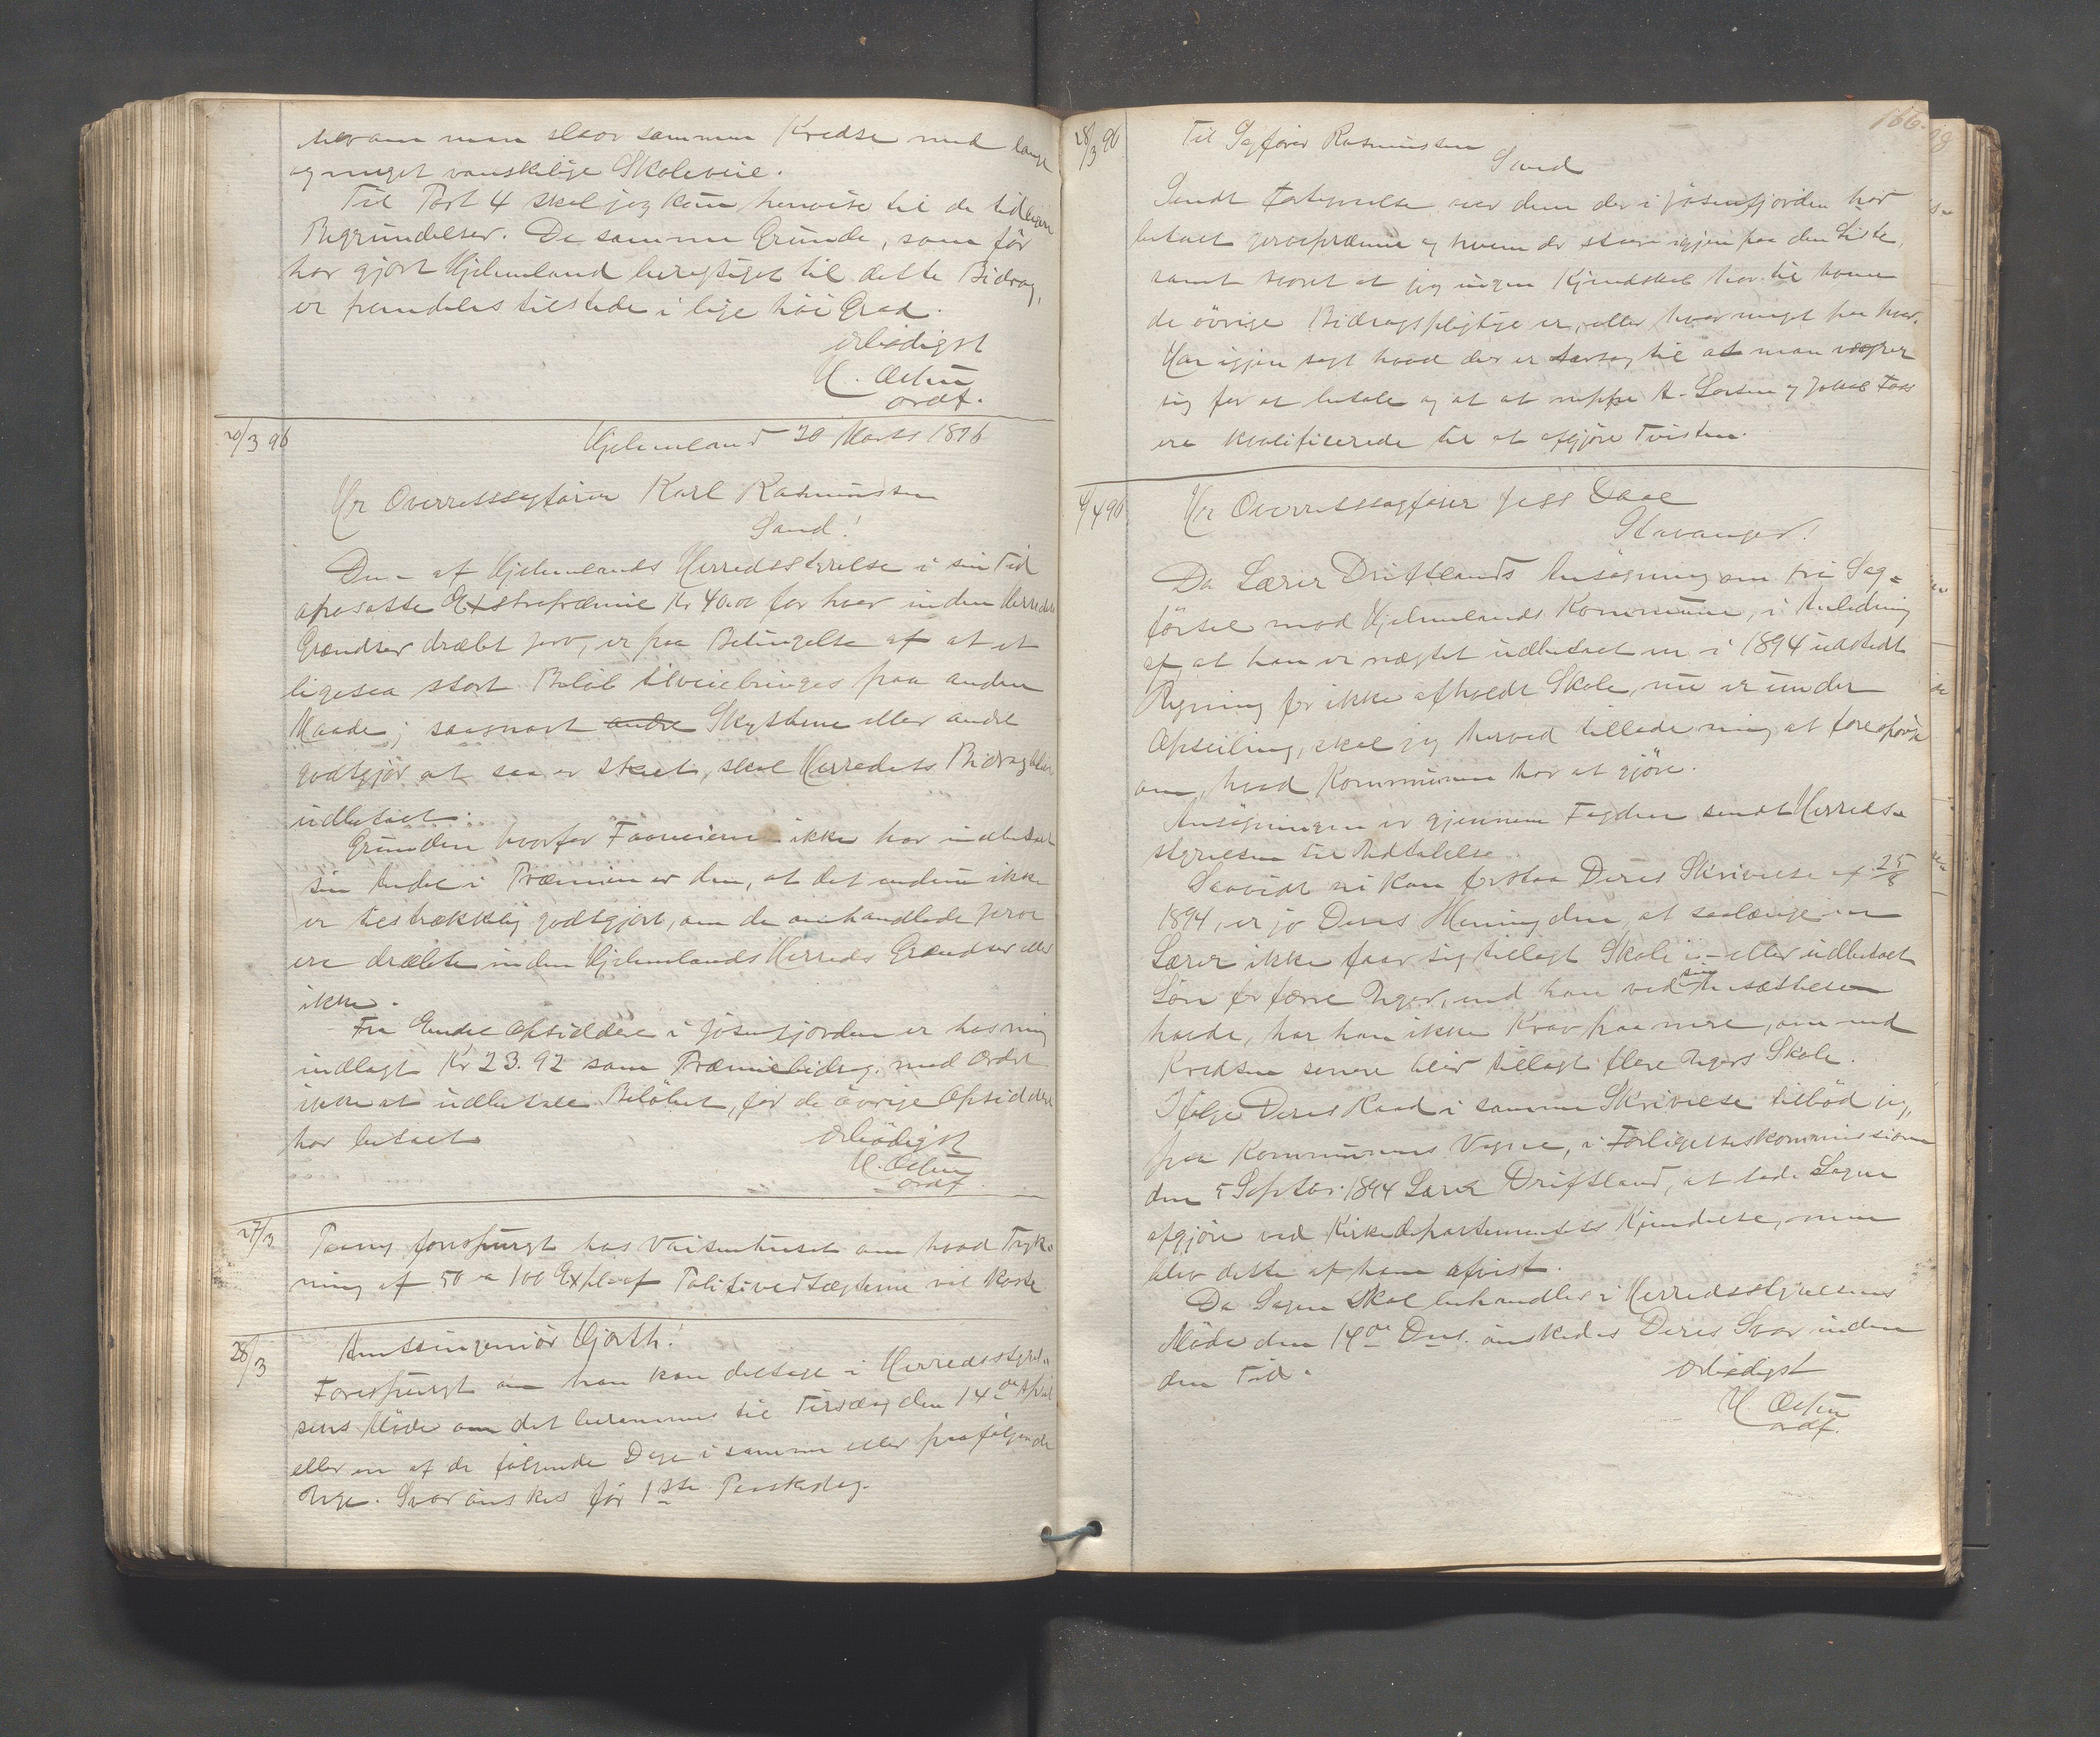 man slaar sammen Kredse med lange
og meget vanskelige Skoleveie.
Til Post 4 skal jeg kun henvise til de tidligere
Begrundelser. De samme Grunde, som før
har gjort Hjelmeland berettiget til dette Bidrag,
er fremdeles tilstede i lige høi Grad.
Ærbødigst
ordf.
20/3 96
Hjelmeland 20 Marts 1896
Hr Overretssagfører Karl Rasmussen
Sand!
Den af Hjelmelands Herredsstyrelse i sin Tid
opsatte Extrapræmie Kr 40.00 for hver inden Herredets
Grændser dræbt Jerv, er paa Betingelse af at et
ligesaa stort Beløb tilveiebringes paa anden
Maade; saasnart andre Skytterne eller andet
godtgjør at saa er skeet, skal Herredets Bidrag blive
udbetalt.
Grunden hvorfor Faareierne ikke har indbetalt
sin Andel i Præmien er den, at det endnu ikke
er tilstrækkelig godtgjort, om de omhandlede Jerve
ere dræbte inden Hjelmelands Herreds Grændser eller
ikke.
Fra Opsiddere i Jøsenfjorden er hos mig
indlagt Kr 23.92 som Præmiebidrag med Ordre
ikke at udbetale Beløbet, før de øvrige Opsiddere
har betalt
Ærbødigst
ordf
27/3
forespurgt hos Vaisenhuset om hvad Tryk-
ning af 50 a 100 Expl. af Politivedtægterne vil koste
28/3
Amtsingeniør Hjorth!
Forespurgt om han kan deltage i Herredsstyrel-
sens Møde om det berammes til Tirsdag den 14de April
eller en af de følgende Dage i samme eller paafølgende
Uge. Svar ønskes før 1ste Paaskedag.
166.
28/3 96
Til Sagfører Rasmussen
Sand
Sendt Fortegnelse over dem der i Jøsenfjorden har
betalt Jervepræmie og hvem der staar igjen paa den Liste,
samt svaret at jeg ingen Kjendskab har til hvem
de øvrige Bidragspligtige er, eller hvor meget paa hver.
Har igjen sagt hvad der er Aarsag til at man vægrer
sig for at betale og at A. Larsen og Jakob
ere kvalificerede til at afgjøre Tvisten.
4/4 96
Hr Overretssagfører
Stavanger!
Da Lærer Driftlands Ansøgning om fri Sag-
førsel mod Hjelmelands Kommune, i Anledning
af at han er nægtet udbetalt en i 1894 udstedt
Regning for ikke afholdt Skole, nu er under
Opseiling, skal jeg herved tillade mig at forespørge
om, hvad Kommunen har at gjøre.
Ansøgningen er gjennem Fogden sendt Herreds-
styrelsen til Udtalelse.
Saavidt vi kan forstaa Deres Skrivelse af 25/8
1894, er jo Deres Mening den, at saalænge en
Lærer ikke faar sig tillagt Skole i- eller udbetalt
Løn for færre Uger, end han ved sin Ansættelse
havde, har han ikke Krav paa mere, om end
Kredsen senere blir tillagt flere Ugers Skole.
Ifølge Deres Raad i samme Skrivelse tilbød jeg,
paa Kommunens Vegne, i Forligelseskommissionen
den 5 Septbr. 1894 Lærer Driftland, at lade Sagen
afgjøre ved Kirkedepartementets Kjendelse, men
blev dette af ham afvist.
Da Sagen skal behandles i Herredsstyrelsens
Møde den 14de Ds. ønskedes Deres Svar inden
den Tid.
Ærbødigst
ordf.